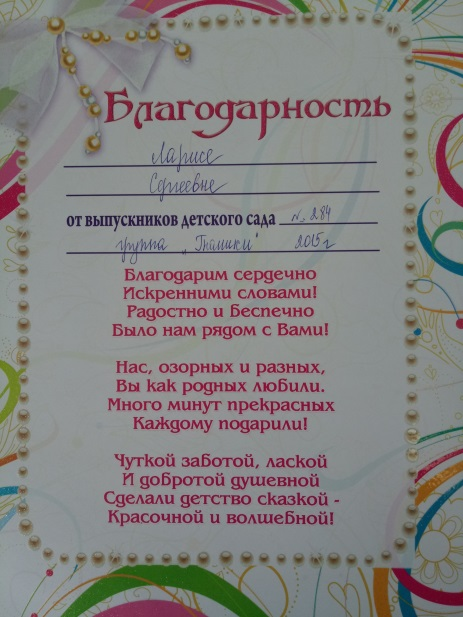 Благодарность
Ларисе
Сергеевне
от выпускников детского сада № 284
группа "Гномики" 2015 г
Благодарим сердечно
Искренними словами!
Радостно и беспечно
Было нам рядом с Вами!
Нас, озорных и разных,
Вы как родных любили.
Много минут прекрасных
Каждому подарили!
Чуткой заботой, лаской
И добротой душевной
Сделали детство сказкой -
Красочной и волшебной!